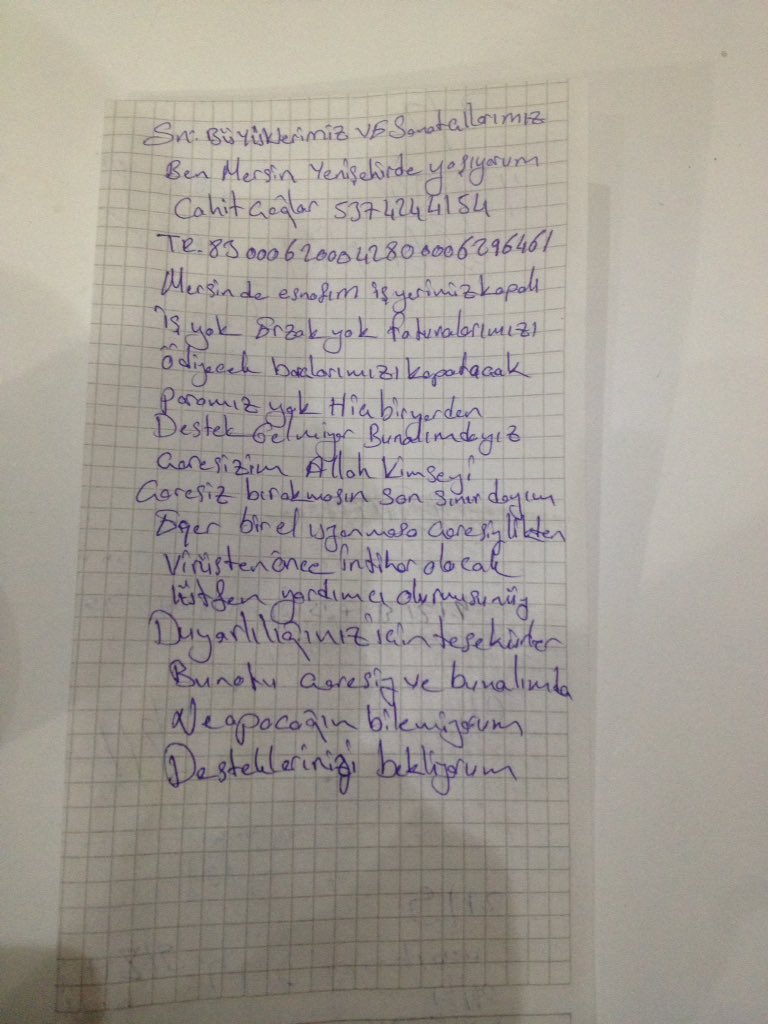 Sn. Büyüklerimiz VE Sanatcılarımız
Ben Mersin Yenişehirde yaşıyorum
Cahit Çağlar 5374244154
TR.83 0006200042800006296461
Mersinde esnafım iş yerimiz kapalı
İş yok Erzak yok faturalarımızı
Ödiyecek borclarımızı kapatacak
Paramız yok Hiçbiryerden
Destek Gelmiyor Bunalımdayız
Çaresizim Allah Kimseyi
Çaresiz bırakmasın Son Sınırdayım
Eğer bir el uzanmasa Çaresizlikten
Virüsten önce İntihar olacak
Lütfen yardımcı olurmusunuz
Duyarlılığınız için teşekürler
Bunotu çaresiz ve bunalımda
Ne apacağım bilemiyorum
Desteklerinizi bekliyorum